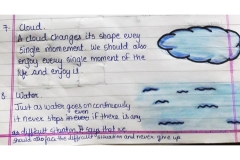 7. Cloud.
A cloud changes its shape evey
single momement. We should also
enjoy every single moment of the
life and enjoy it.
8. Water
Just as water goes on continously
it never stops in even if there is any
as difficult situation it says that we
should also face the difficulty situation and never give up